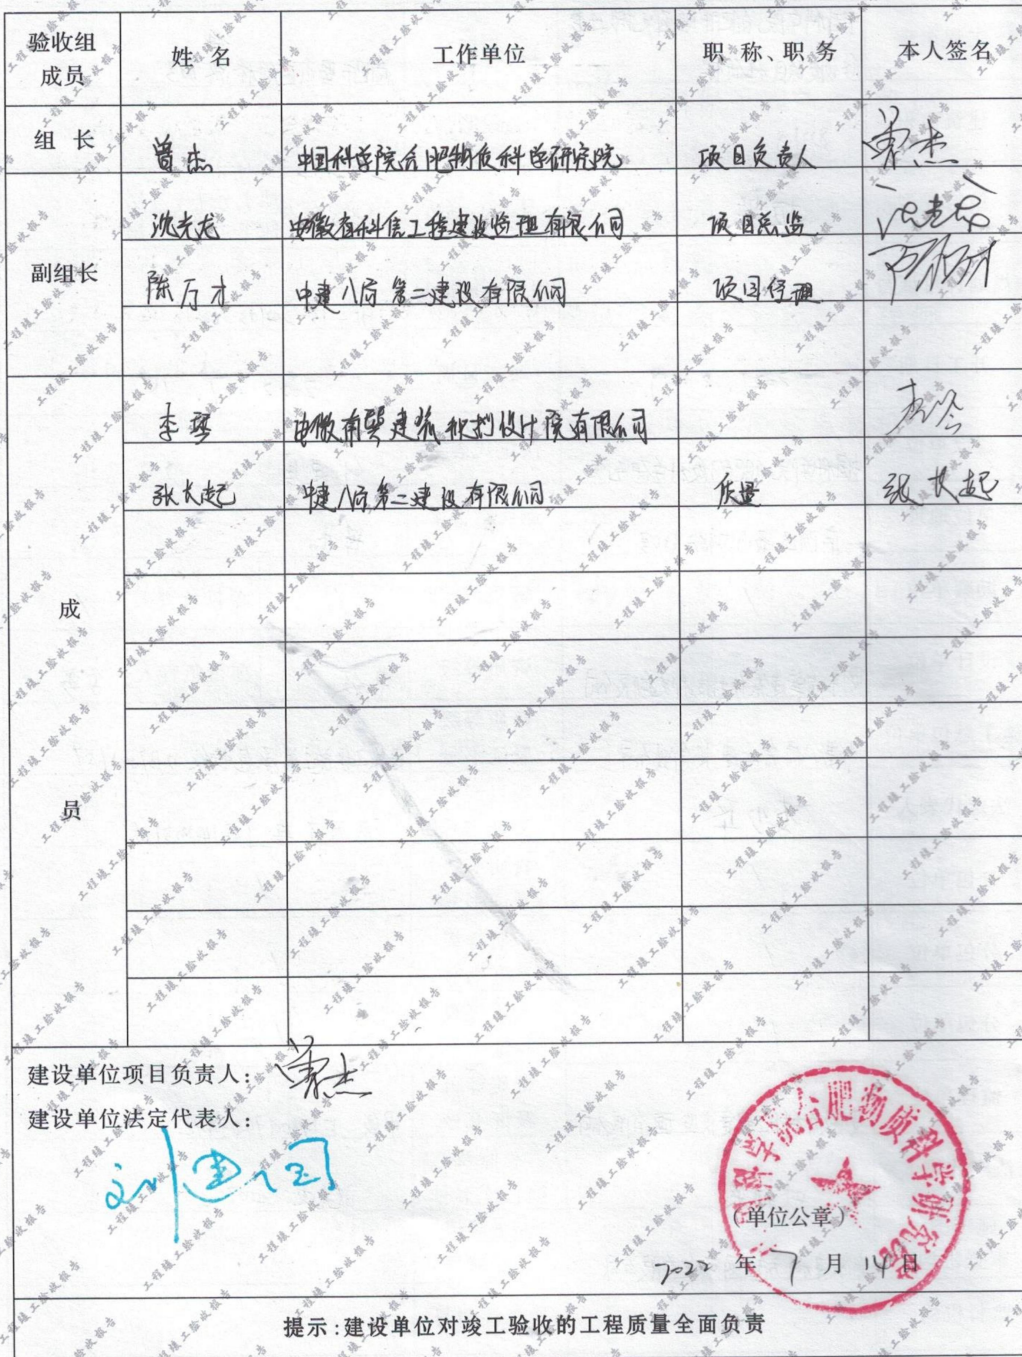 验收组成员 姓 名 工作单位 职 称、职 务 本人签名
组 长 曾杰 中国科学院合肥物质科学研究院 项目负责人 曾杰
沈光龙 安徽省科信工程建设监理有限公司 项目总监
副组长 陈方才 中建八局第二建设有限公司 项目经理
李琴 建筑规划设计院有限公司
张长起 中建八局第二建设有限公司 质量 张长起
成
员
建设单位项目负责人: 曾杰
建设单位法定代表人:
刘建国
中国科学院合肥物质科学研究院
(单位公章)
2022 年 7 月 14 日
提示:建设单位对竣工验收的工程质量全面负责
工程竣工验收报告